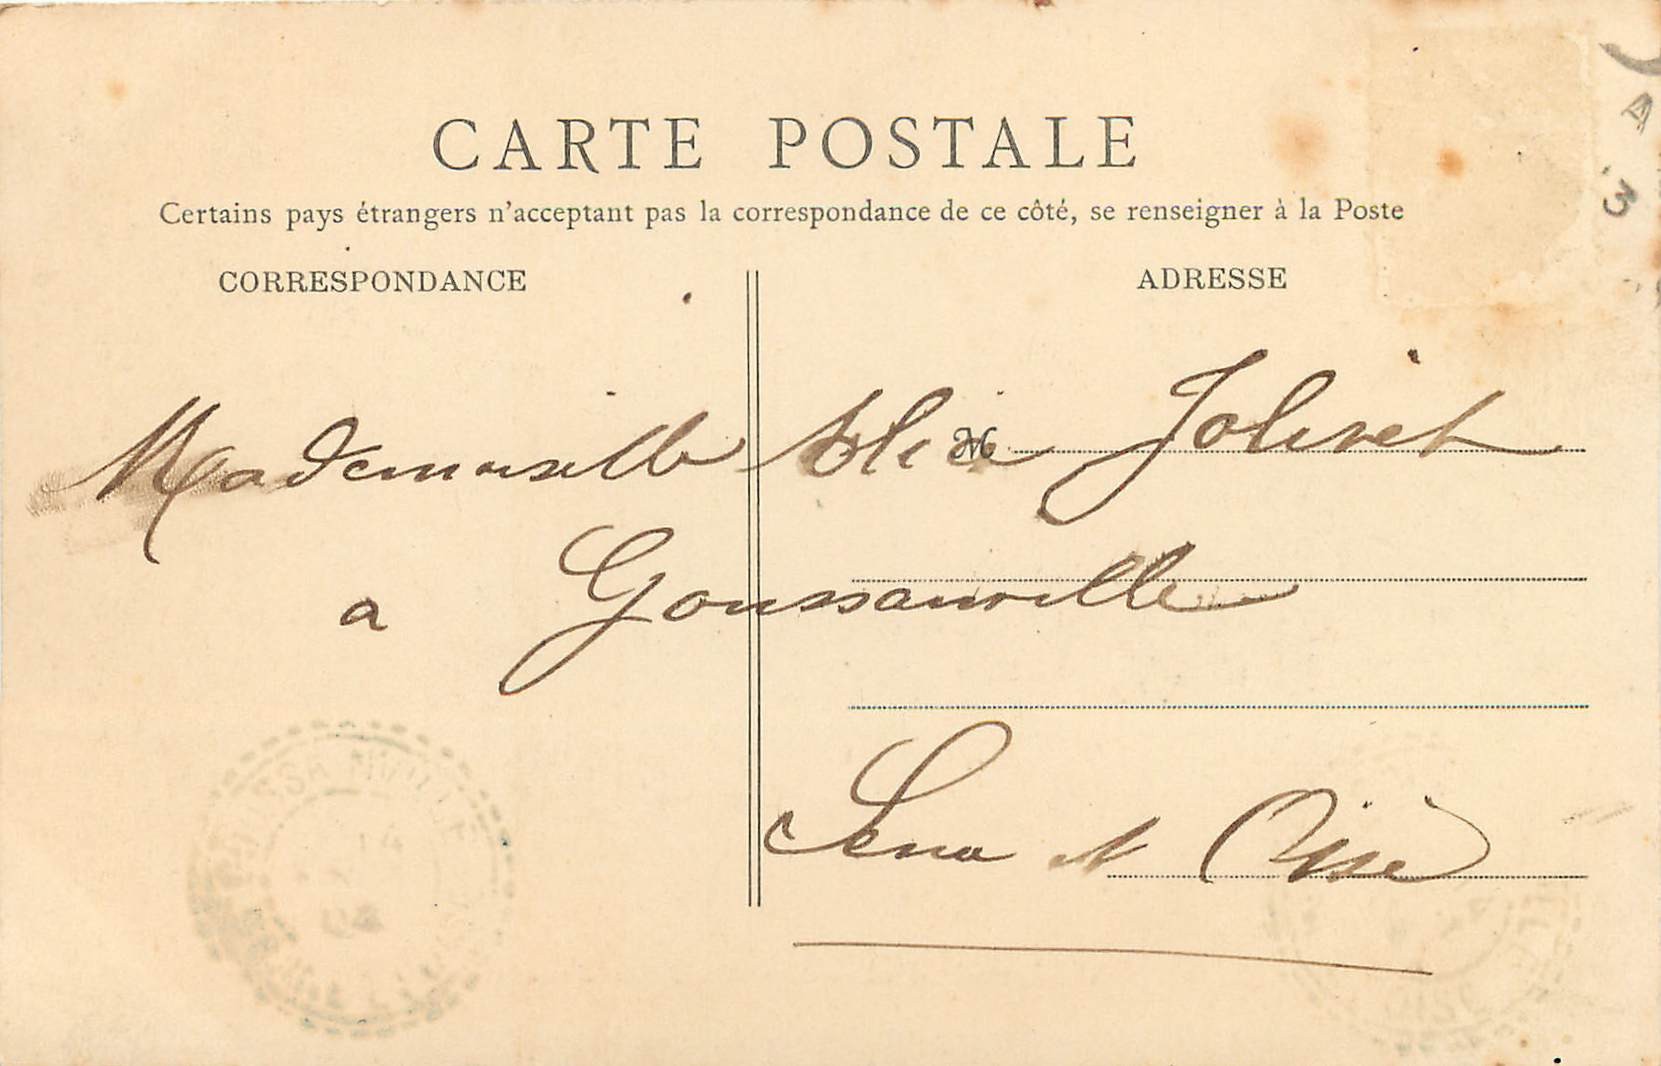 CARTE POSTALE
Certains pays étrangers n'acceptant pas la correspondance de ce côté, se renseigner à la Poste
CORRESPONDANCE
ADRESSE
A
3
M
Mademoiselle Alice Jolivet
a Goussainville
Seine et Oise
14
04